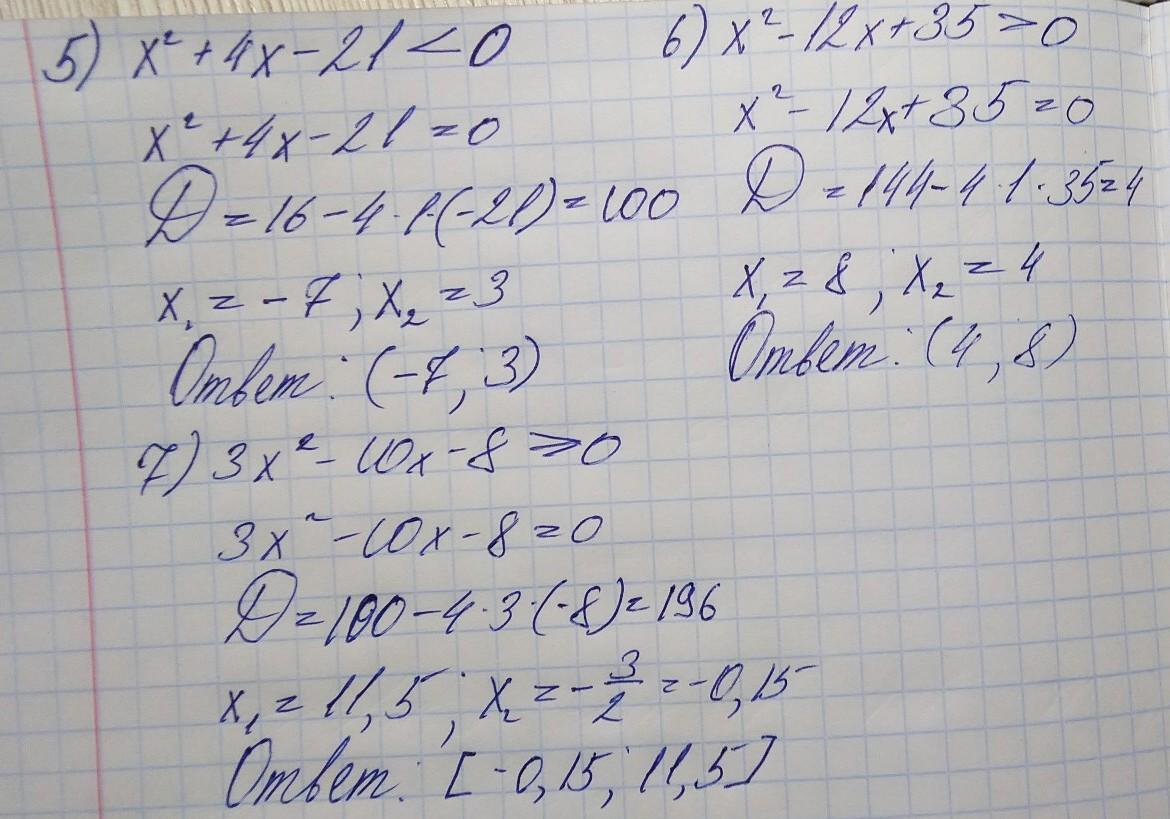 5) x² + 4x - 21 < 0
x² + 4x - 21 = 0
D = 16 - 4 · 1 · (-21) = 100
x₁ = -7 ; x₂ = 3
Ответ: (-7 ; 3)
6) x² - 12x + 35 > 0
x² - 12x + 35 = 0
D = 144 - 4 · 1 · 35 = 4
x₁ = 8 ; x₂ = 4
Ответ: (4 ; 8)
7) 3x² - 10x - 8 ≥ 0
3x² - 10x - 8 = 0
D = 100 - 4 · 3 · (-8) = 196
x₁ = 11,5 ; x₂ = -3/2 = -0,15
Ответ: [-0,15 ; 11,5]